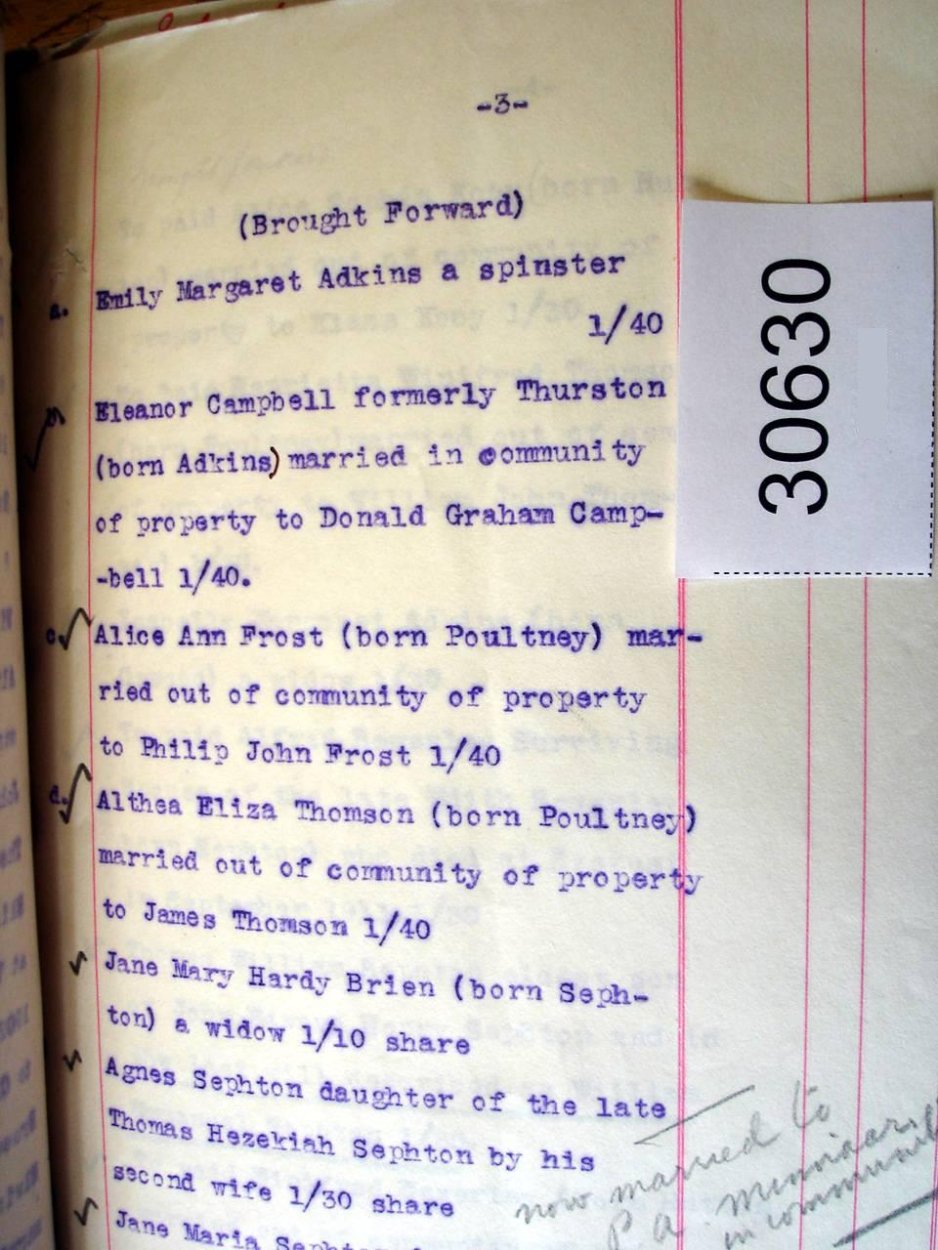 -3-
(Brought Forward)
a. Emily Margaret Adkins a spinster
1/40
Eleanor Campbell formerly Thurston
(born Adkins) married in community
of property to Donald Graham Camp-
-bell 1/40.
c. Alice Ann Frost (born Poultney) mar-
ried out of community of property
to Philip John Frost 1/40
d. Althea Eliza Thomson (born Poultney)
married out of community of property
to James Thomson 1/40
Jane Mary Hardy Brien (born Seph-
ton) a widow 1/10 share
Agnes Sephton daughter of the late
Thomas Hezekiah Sephton by his
second wife 1/30 share
Jane Maria
now married to
P a
in community
30630